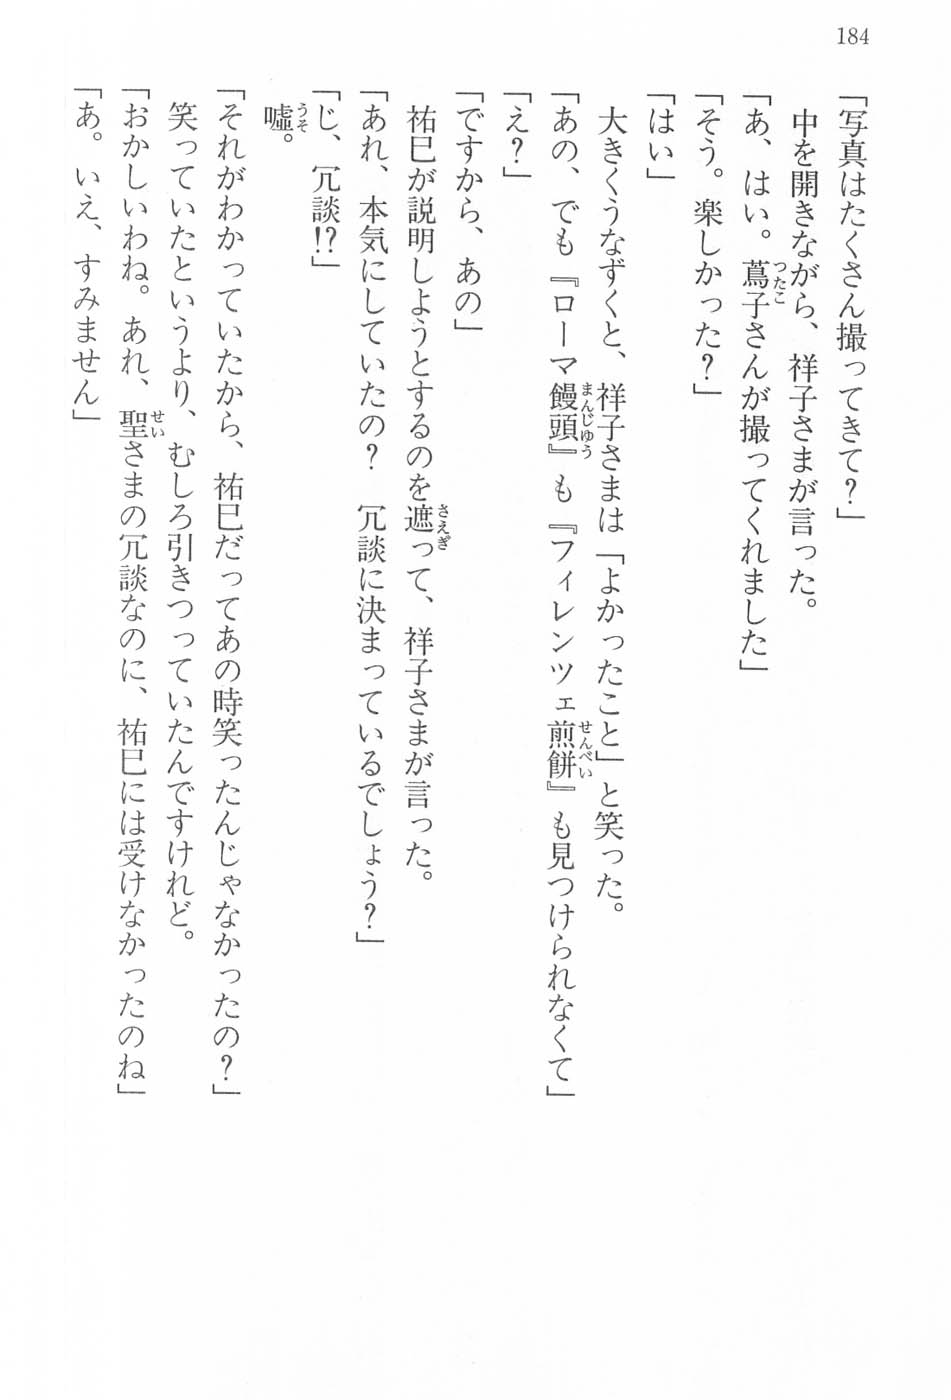 184
「写真はたくさん撮ってきて？」
中を開きながら、祥子さまが言った。
「あ、はい。蔦子さんが撮ってくれました」
「そう。楽しかった？」
「はい」
大きくうなずくと、祥子さまは「よかったこと」と笑った。
「あの、でも『ローマ饅頭』も『フィレンツェ煎餅』も見つけられなくて」
「え？」
「ですから、あの」
祐巳が説明しようとするのを遮って、祥子さまが言った。
「あれ、本気にしていたの？　冗談に決まっているでしょう？」
「じ、冗談!?」
嘘。
「それがわかっていたから、祐巳だってあの時笑ったんじゃなかったの？」
笑っていたというより、むしろ引きつっていたんですけれど。
「おかしいわね。あれ、聖さまの冗談なのに、祐巳には受けなかったのね」
「あ。いえ、すみません」